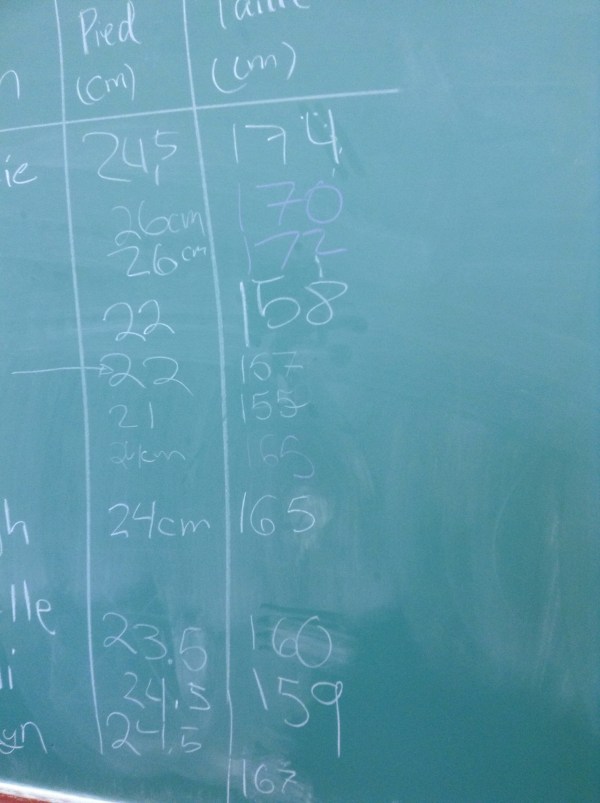 Pied Taille
n (cm) (cm)
ie 24,5 174
26cm 170
26cm 172
22 158
22 157
21 155
165
h 24cm 165
lle
23.5 160
i 24.5 159
yn 24,5
167